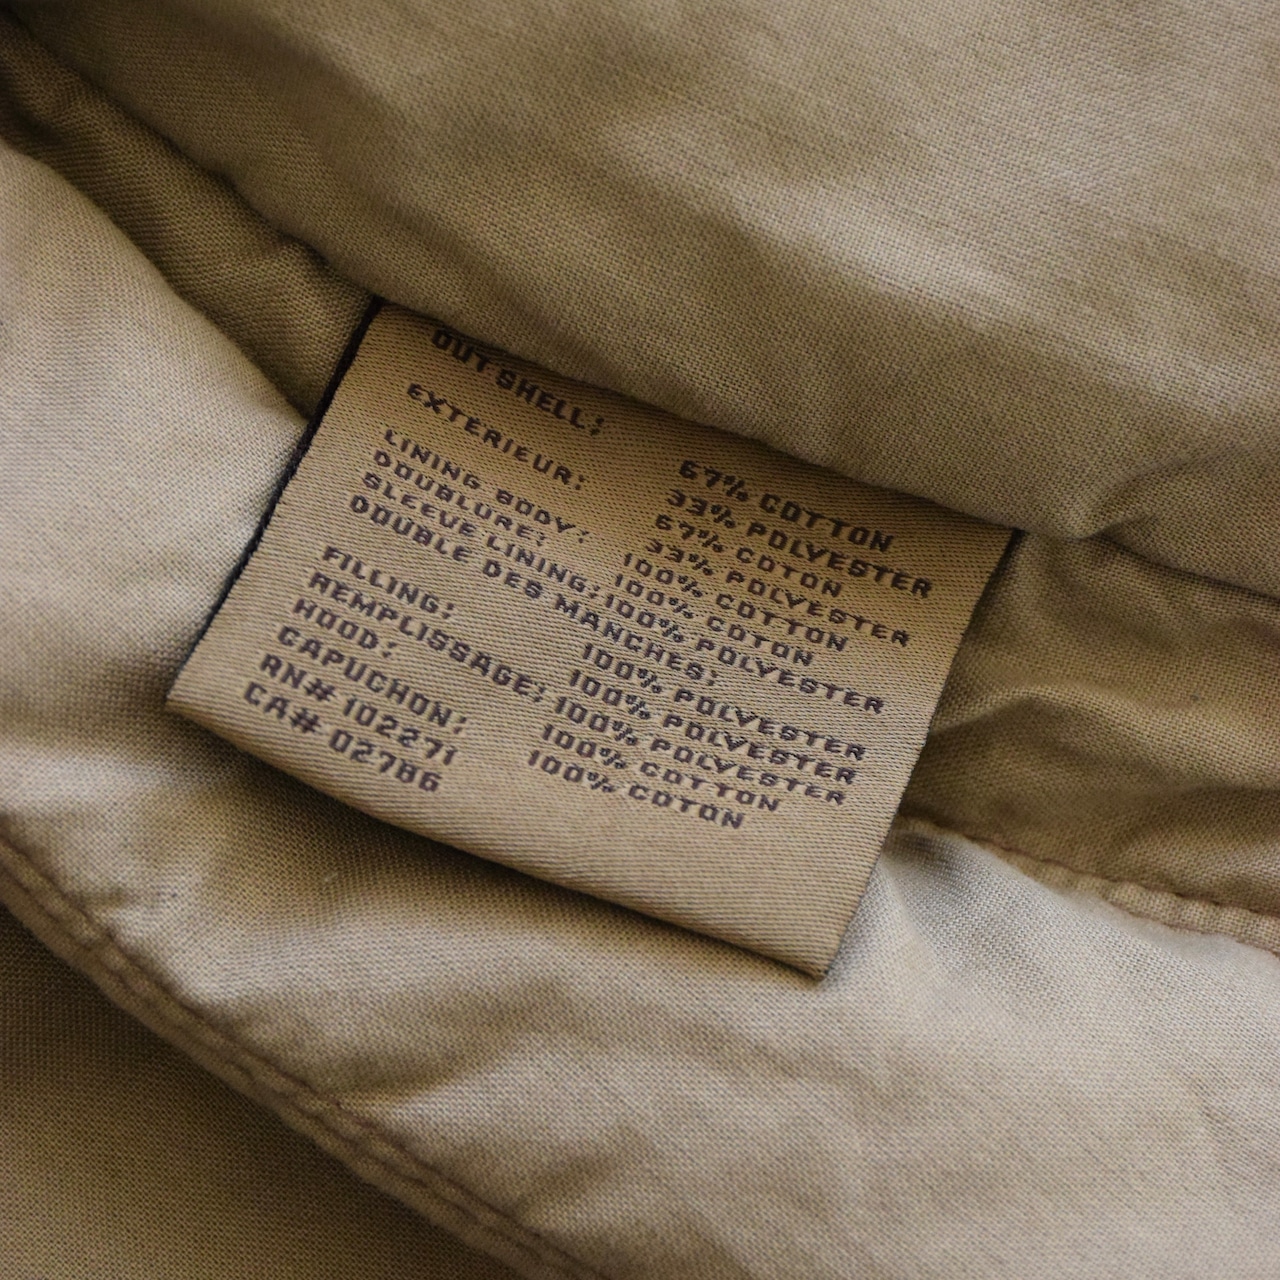 OUTSHELL:
67% COTTON
33% POLYESTER
EXTERIEUR:
67% COTON
33% POLYESTER
LINING BODY: 100% COTTON
DOUBLURE: 100% COTON
SLEEVE LINING: 100% POLYESTER
DOUBLE DES MANCHES:
100% POLYESTER
FILLING: 100% POLYESTER
REMPLISSAGE: 100% POLYESTER
HOOD: 100% COTTON
CAPUCHON: 100% COTON
RN# 102271
CA# 02786